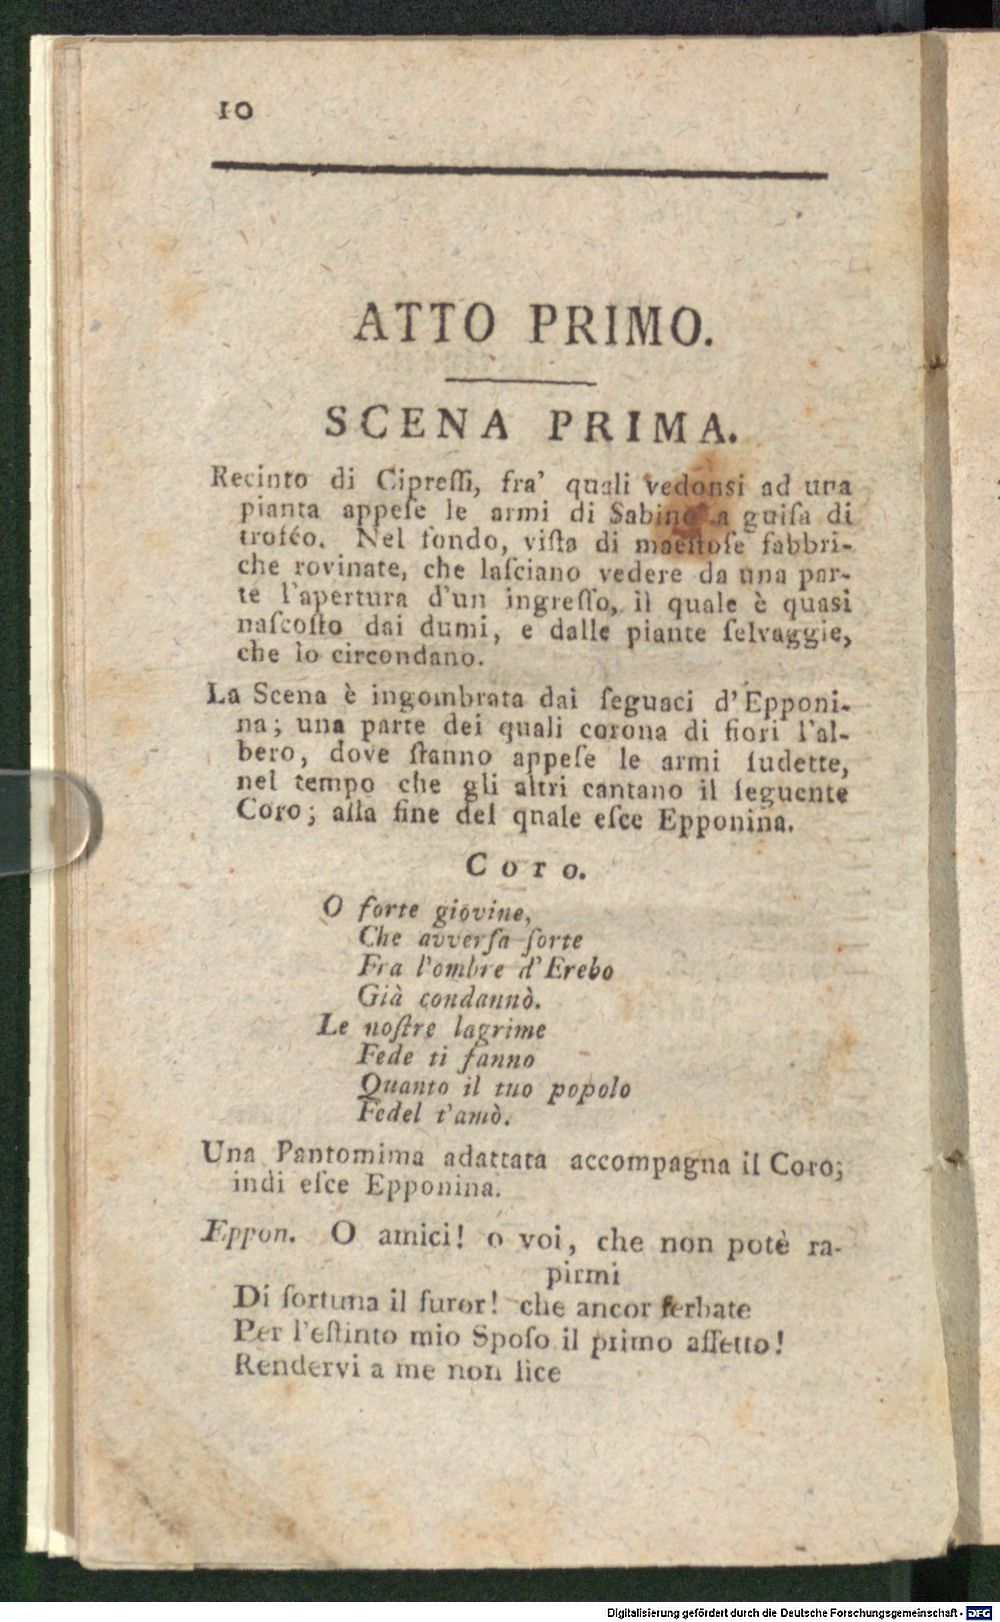 10
ATTO PRIMO.
SCENA PRIMA.
Recinto di Cipreſſi, fra' quali vedonsi ad una
pianta appeſe le armi di Sabino a guiſa di
trofêo. Nel fondo, viſta di maeſtoſe fabbri-
che rovinate, che laſciano vedere da una par-
te l'apertura d'un ingreſſo, il quale è quasi
naſcoſto dai dumi, e dalle piante ſelvaggie,
che lo circondano.
La Scena è ingombrata dai ſeguaci d'Epponi-
na; una parte dei quali corona di fiori l'al-
bero, dove ſtanno appeſe le armi ſudette,
nel tempo che gli altri cantano il ſeguente
Coro; alla fine del quale eſce Epponina.
Coro.
O forte giovine,
Che avverſa ſorte
Fra l'ombre d'Erebo
Già condannò.
Le noſtre lagrime
Fede ti fanno
Quanto il tuo popolo
Fedel t'amò.
Una Pantomima adattata accompagna il Coro;
indi eſce Epponina.
Eppon. O amici! o voi, che non potè ra-
pirmi
Di fortuna il furor! che ancor ſerbate
Per l'eſtinto mio Spoſo il primo affetto!
Rendervi a me non lice
Digitalisierung gefördert durch die Deutsche Forschungsgemeinschaft - DFG